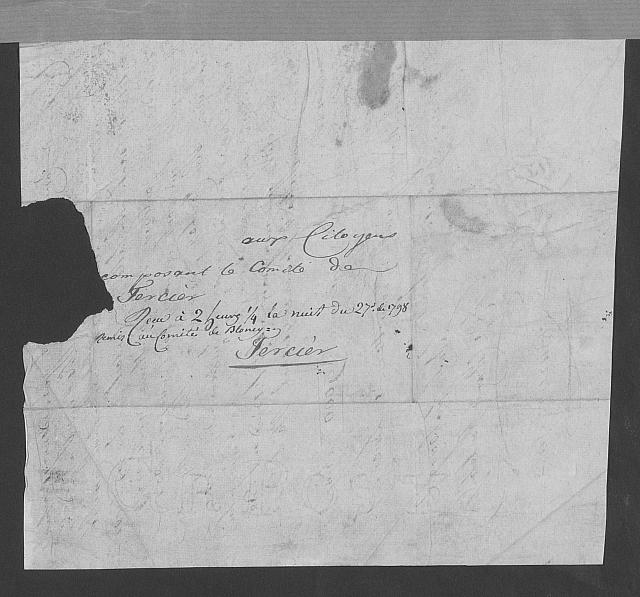 aux Citoyens
composant le Comité de
Tercier
Reçu à 2 heurs 1/4 la nuit du 27 de 1798
remis au Comité de Bloney
Tercier